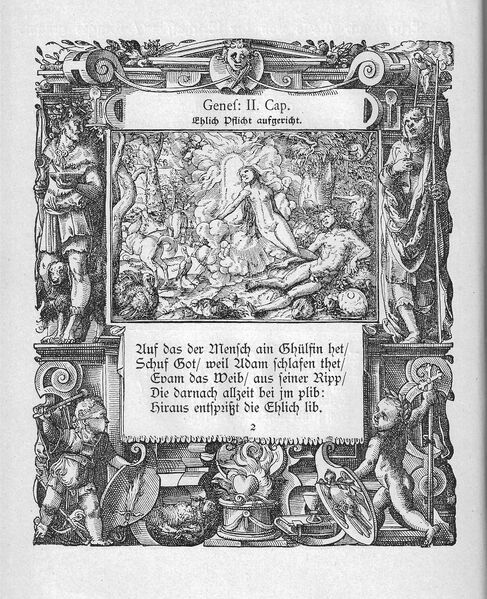 Geneſ: II. Cap.
Ehlich Pflicht aufgericht.
Auf das der Menſch ain Ghülfin het/
Schuf Got/ weil Adam ſchlafen thet/
Evam das Weib/ aus ſeiner Ripp/
Die darnach allzeit bei jm plib:
Hiraus entſpriſzt die Ehlich lib.
2